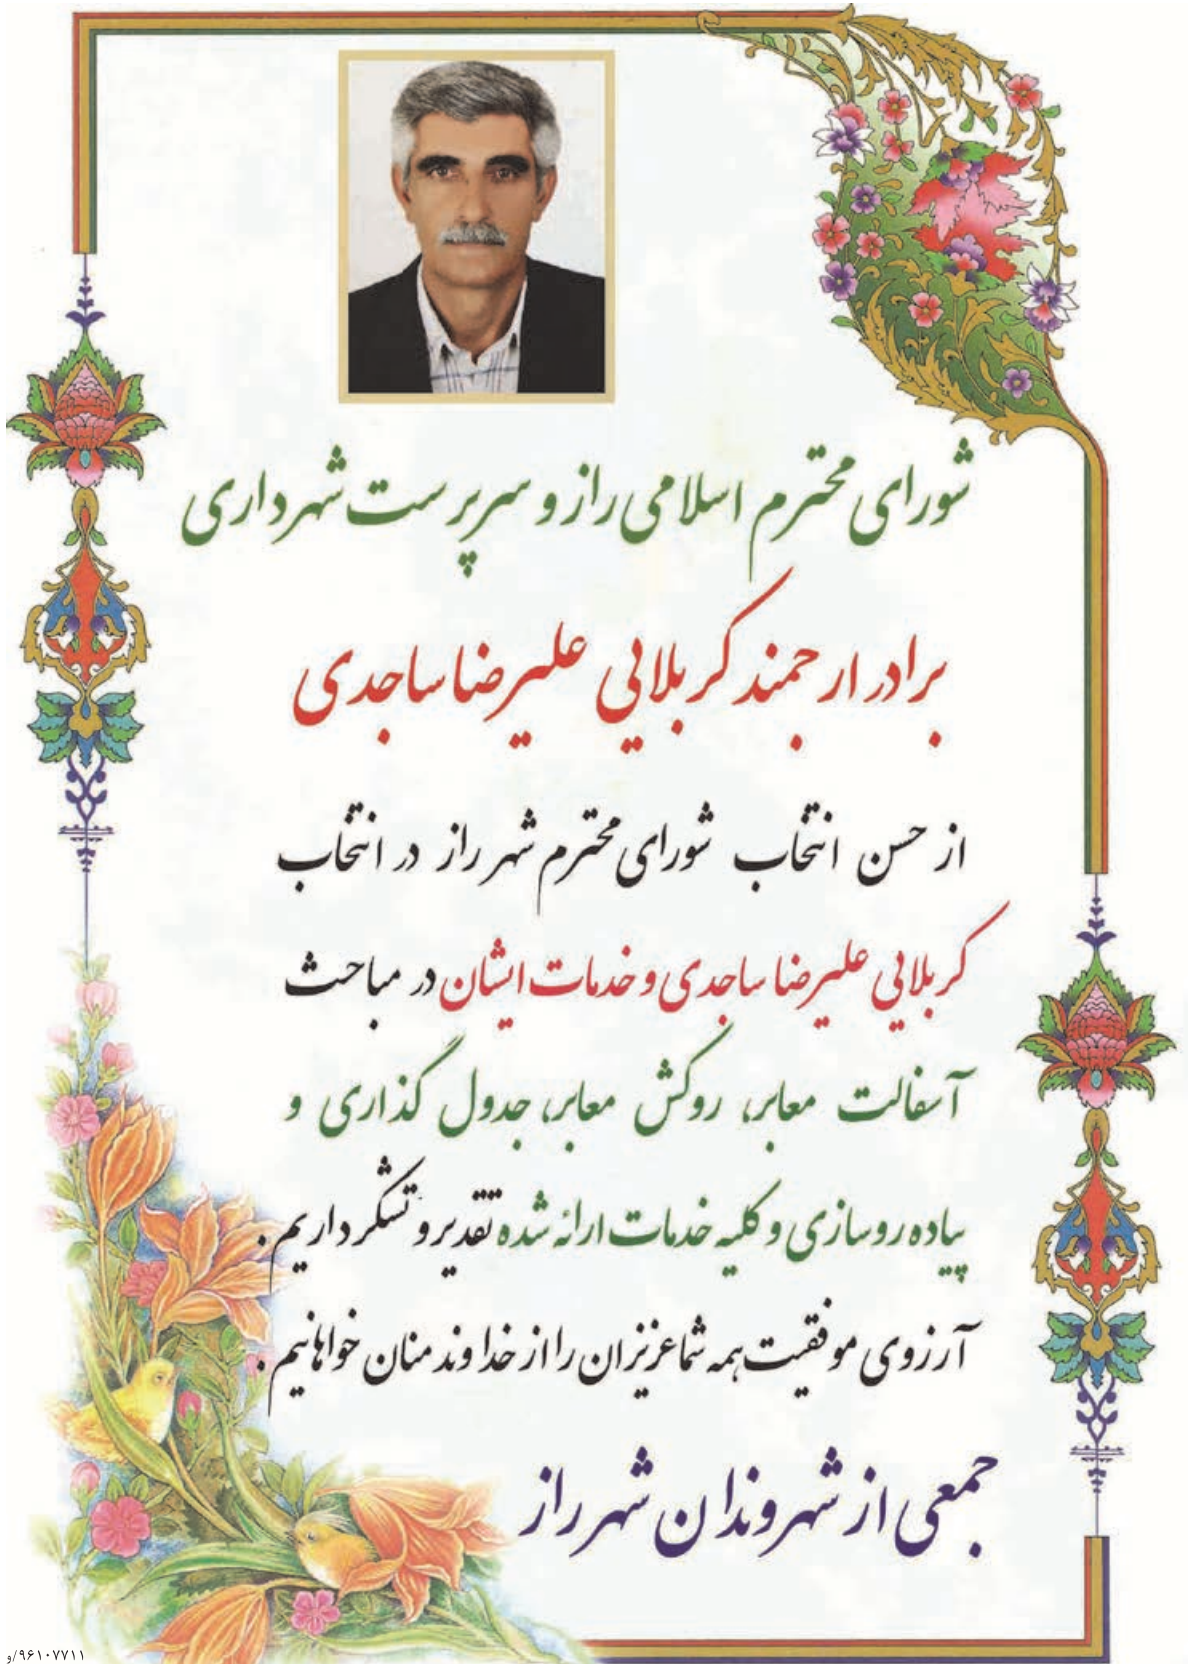 شورای محترم اسلامی راز و سرپرست شهرداری
برادر ارجمند کربلایی علیرضا ساجدی
از حسن انتخاب شورای محترم شهر راز در انتخاب
کربلایی علیرضا ساجدی و خدمات ایشان در مباحث
آسفالت معابر، روکش معابر، جدول گذاری و
پیاده روسازی و کلیه خدمات ارائه شده تقدیر و تشکر داریم.
آرزوی موفقیت همه شما عزیزان را از خداوند منان خواهانیم.
جمعی از شهروندان شهر راز
۹۶۱۰۷۷۱۱/و